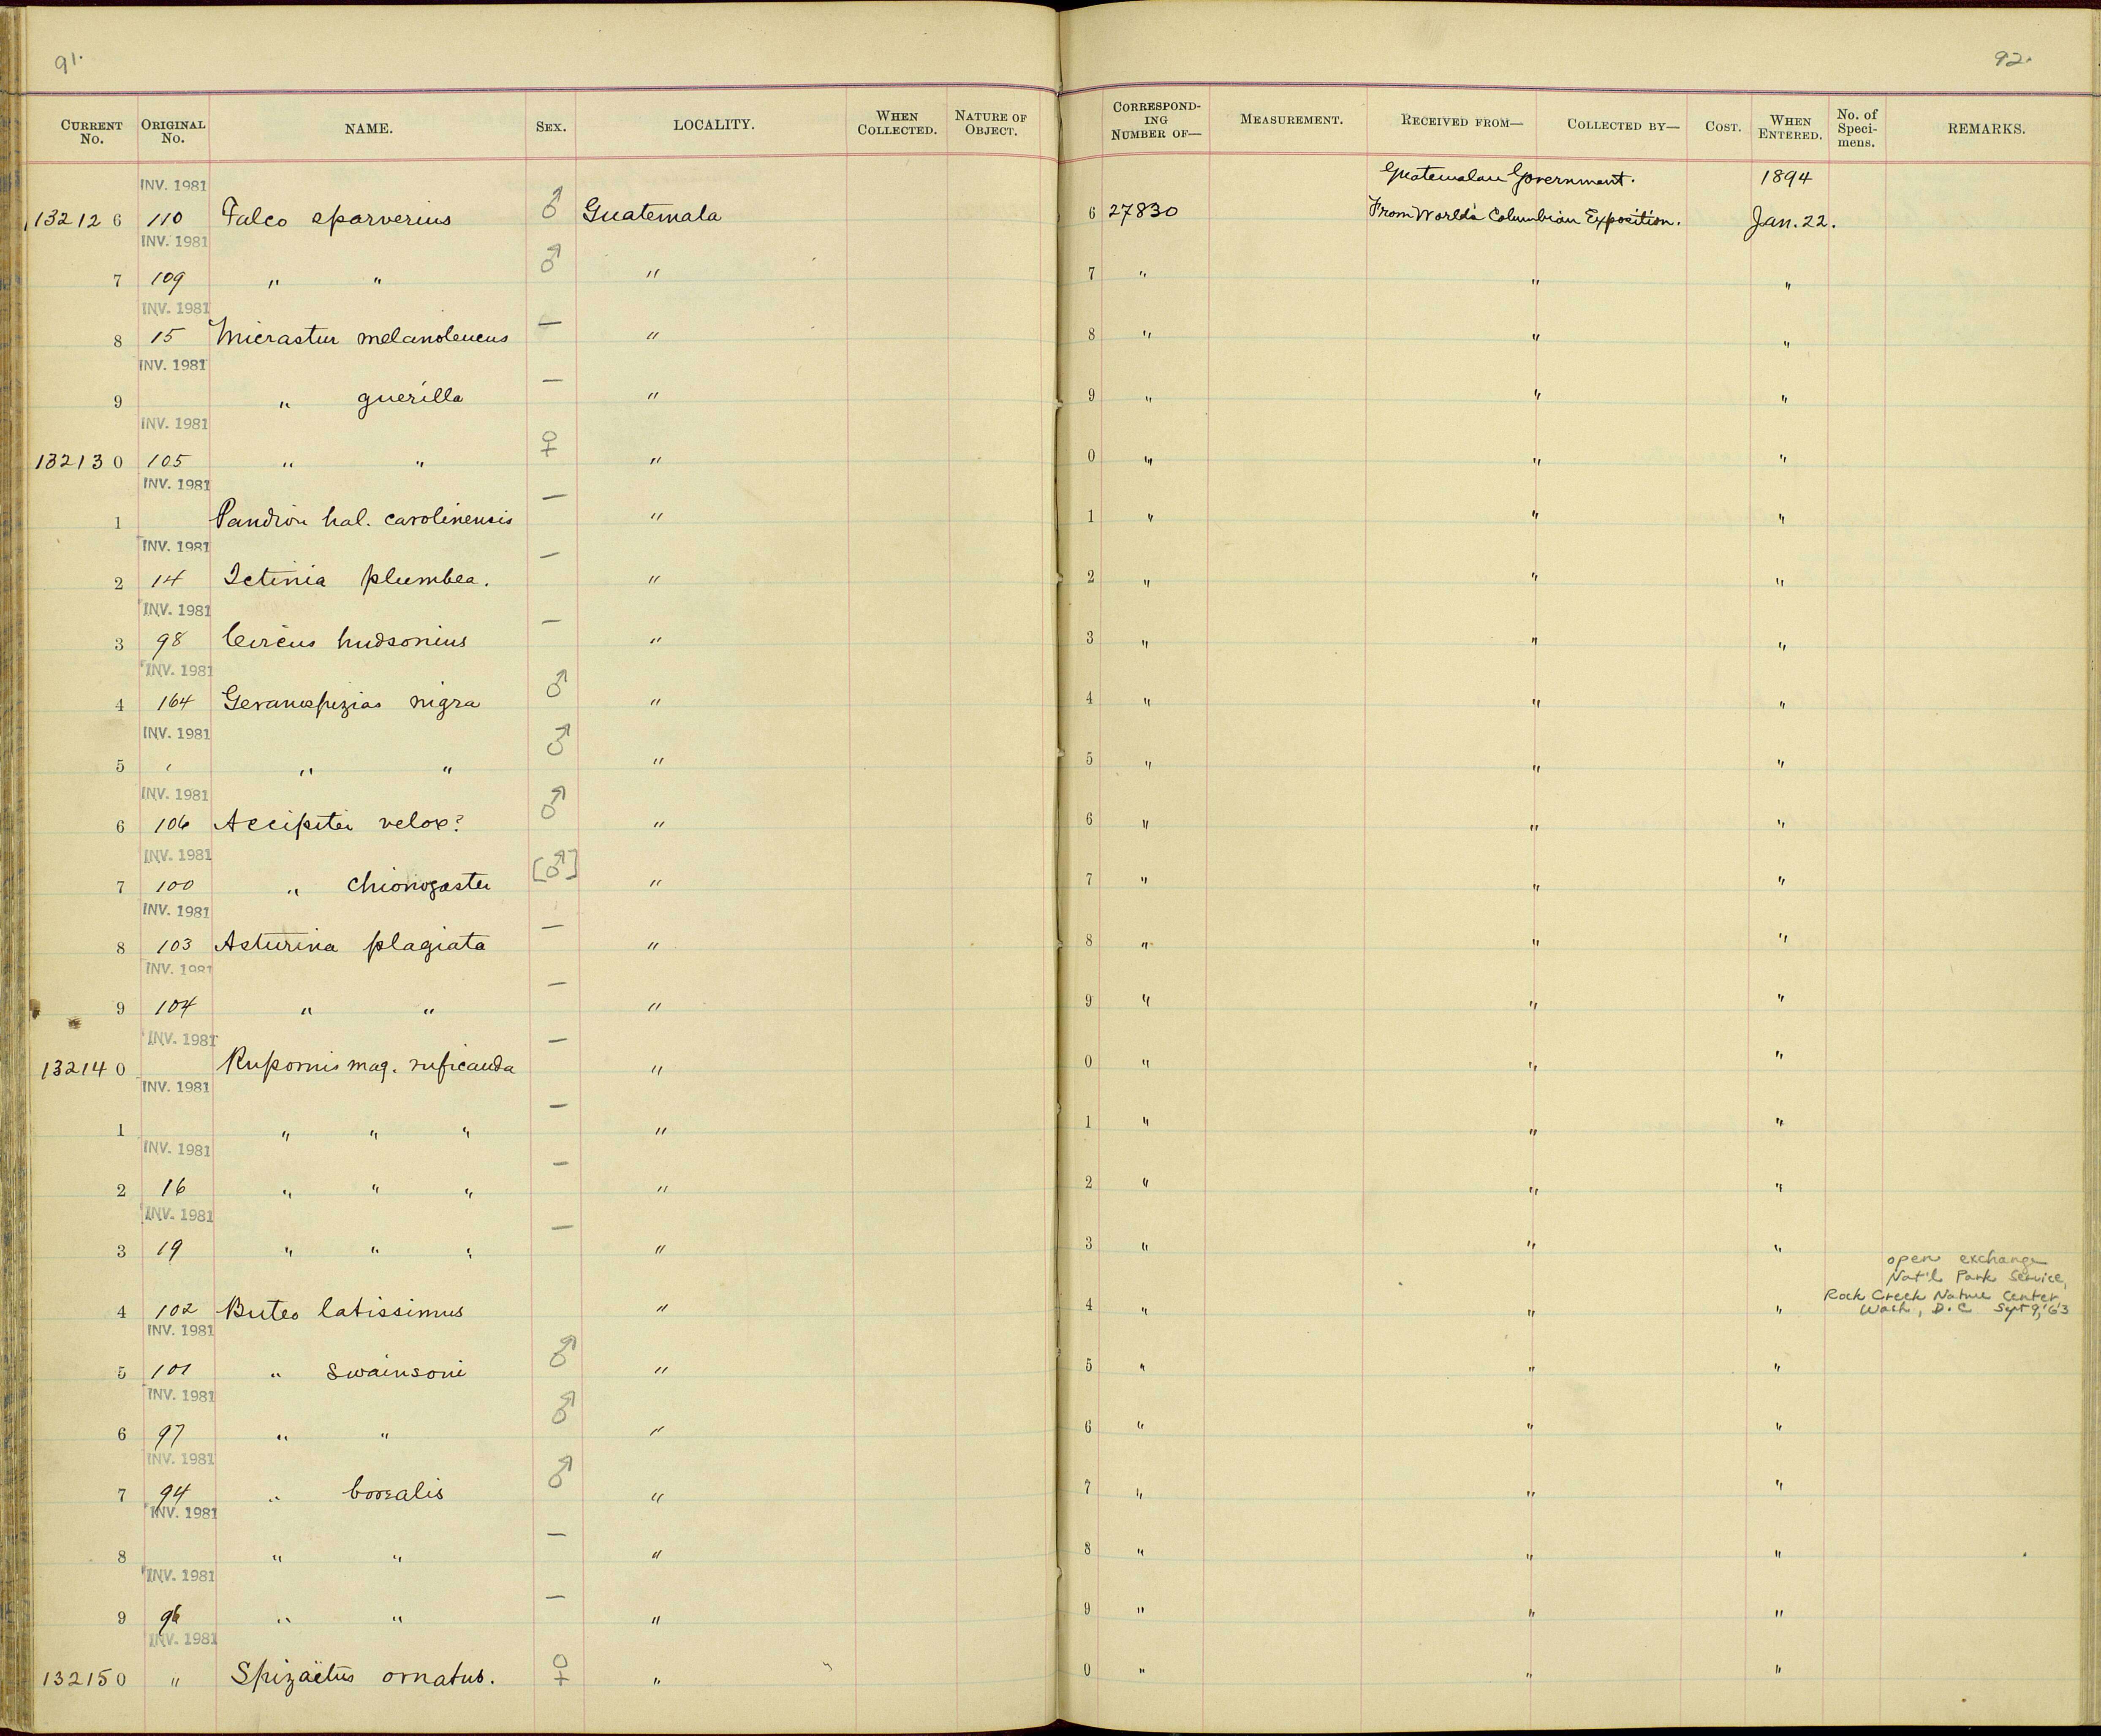 91.
CURRENT No. ORIGINAL No. NAME. SEX. LOCALITY. WHEN COLLECTED. NATURE OF OBJECT.
INV. 1981
132126 110 Falco sparverius ♂ Guatemala
INV. 1981
7 109 " " ♂ "
INV. 1981
8 15 Micrastur melanoleucus — "
INV. 1981
9 " guerilla — "
INV. 1981
132130 105 " " ♀ "
INV. 1981
1 Pandion hal. carolinensis — "
INV. 1981
2 14 Ictinia plumbea. — "
INV. 1981
3 98 Circus hudsonius — "
INV. 1981
4 164 Geranospizias nigra ♂ "
INV. 1981
5 " " ♂ "
INV. 1981
6 106 Accipiter velox? ♂ "
INV. 1981
7 100 " chionogaster [♂] "
INV. 1981
8 103 Asturina plagiata — "
INV. 1981
9 104 " " — "
INV. 1981
132140 Rupornis mag. ruficauda — "
INV. 1981
1 " " " — "
INV. 1981
2 16 " " " — "
INV. 1981
3 19 " " " — "
4 102 Buteo latissimus "
INV. 1981
5 101 " Swainsoni ♂ "
INV. 1981
6 97 " " ♂ "
INV. 1981
7 94 " borealis ♂ "
INV. 1981
8 " " — "
INV. 1981
9 96 " " — "
INV. 1981
132150 " Spizaëtus ornatus. ♀ "
92.
CORRESPONDING NUMBER OF— MEASUREMENT. RECEIVED FROM— COLLECTED BY— COST. WHEN ENTERED. No. of Specimens. REMARKS.
Guatemalan Government. 1894
6 27830 From World's Columbian Exposition. Jan. 22.
7 " " "
8 " " "
9 " " "
0 " " "
1 " " "
2 " " "
3 " " "
4 " " "
5 " " "
6 " " "
7 " " "
8 " " "
9 " " "
0 " " "
1 " " "
2 " " "
3 " " "
open exchange
Nat'l Park Service,
Rock Creek Nature Center
4 " " " Wash, D.C Sept 9, '63
5 " " "
6 " " "
7 " " "
8 " " "
9 " " "
0 " " "